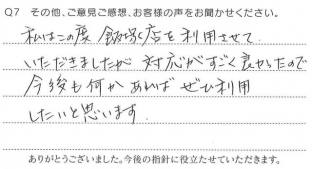 Q7 その他、ご意見ご感想、お客様の声をお聞かせください。
私はこの度 飯塚店を利用させて
いただきましたが 対応がすごく良かったので
今後も何かあれば ぜひ利用
したいと思います
ありがとうございました。今後の指針に役立たせていただきます。